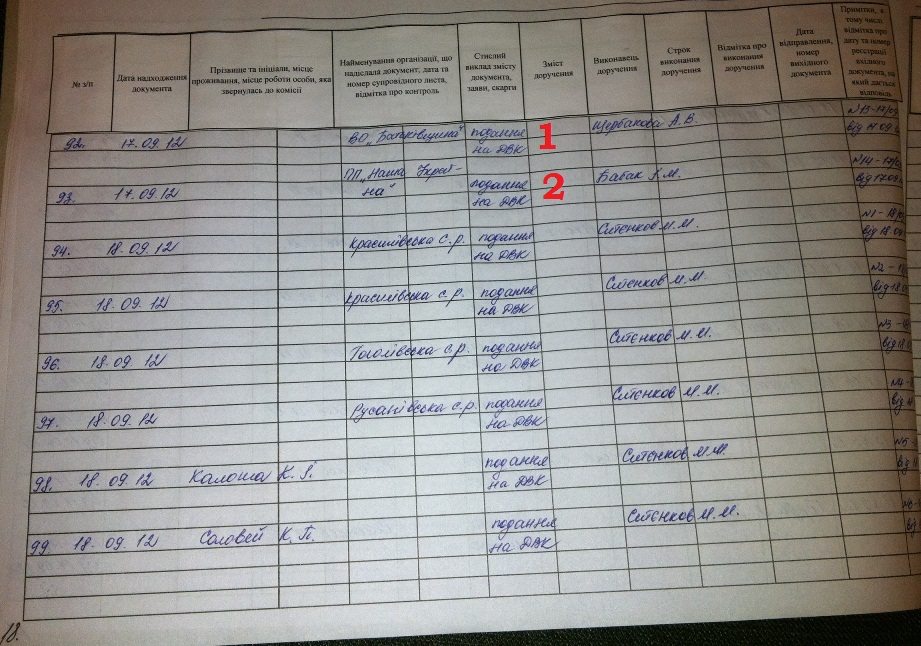 № з/п
Дата надходження
документа
Прізвище та ініціали, місце
проживання, місце роботи особи, яка
звернулась до комісії
Найменування організації, що
надіслала документ, дата та
номер супровідного листа,
відмітка про контроль
Стислий
виклад змісту
документа,
заяви, скарги
Зміст
доручення
Виконавець
доручення
Строк
виконання
доручення
Відмітка про
виконання
доручення
Дата
відправлення,
номер
вихідного
документа
Примітки, в
тому числі
відмітка про
дату та номер
реєстрації
вхідного
документа, на
який дається
відповідь
92. 17.09.12 ВО „Батьківщина" подання 1 Щербакова А.В. №13-17/09
на ДВК від 17.09
93. 17.09.12 ПП „Наша Украї- подання 2 Бабак №14-17/0
на" на ДВК від 17.09
94. 18.09.12 Красилівська с.р. подання Ситєнков М.М. №1-18/0
на ДВК від 18.09
95. 18.09.12 Красилівська с.р. подання Ситєнков М.М. №2-
на ДВК від 18.0
96. 18.09.12 Гоголівська с.р. подання Ситєнков М.М. №3-
на ДВК від 18.0
97. 18.09.12 Русанівська с.р. подання Ситєнков М.М. №4-
на ДВК від
98. 18.09.12 Калоша К. подання Ситєнков М.М. №5
на ДВК від
99. 18.09.12 Соловей К.П. подання Ситєнков М.М.
на ДВК від
18.